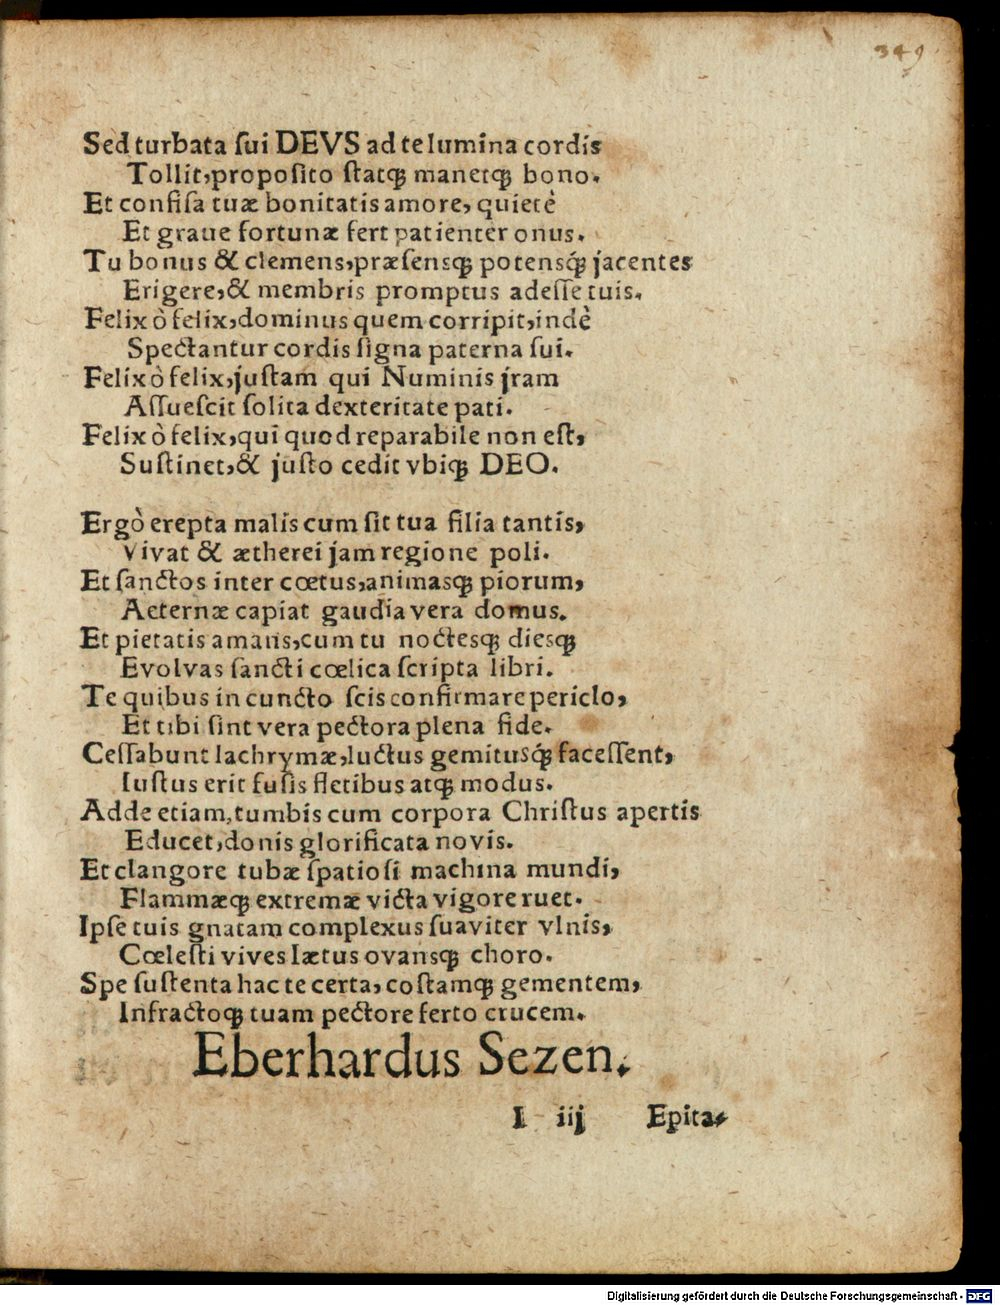 349
Sed turbata ſui DEVS ad te lumina cordis
Tollit, propoſito ſtatq́; manetq́; bono.
Et confiſa tuæ bonitatis amore, quietè
Et graue fortunæ fert patienter onus.
Tu bonus & clemens, præſensq́; potensq́; jacentes
Erigere, & membris promptus adeſſe tuis.
Felix ò felix, dominus quem corripit, indè
Spectantur cordis ſigna paterna ſui.
Felix ò felix, juſtam qui Numinis jram
Aſſueſcit ſolita dexteritate pati.
Felix ò felix, qui quod reparabile non eſt,
Suſtinet, & juſto cedit vbiq; DEO.
Ergò erepta malis cum ſit tua filia tantis,
Vivat & ætherei jam regione poli.
Et ſanctos inter cœtus, animasq́; piorum,
Aeternæ capiat gaudia vera domus.
Et pietatis amans, cum tu noctesq́; diesq́;
Evolvas ſancti cœlica ſcripta libri.
Te quibus in cuncto ſcis confirmare periclo,
Et tibi ſint vera pectora plena fide.
Ceſſabunt lachrymæ, luctus gemitusq́; faceſſent,
Iuſtus erit fuſis fletibus atq; modus.
Adde etiam, tumbis cum corpora Chriſtus apertis
Educet, donis glorificata novis.
Et clangore tubæ ſpatioſi machina mundi,
Flammæq́; extremæ victa vigore ruet.
Ipſe tuis gnatam complexus ſuaviter vlnis,
Cœleſti vives lætus ovansq́; choro.
Spe ſuſtenta hac te certa, coſtamq́; gementem,
Infractoq́; tuam pectore ferto crucem.
Eberhardus Sezen.
I iij Epita-
Digitalisierung gefördert durch die Deutsche Forschungsgemeinschaft - DFG